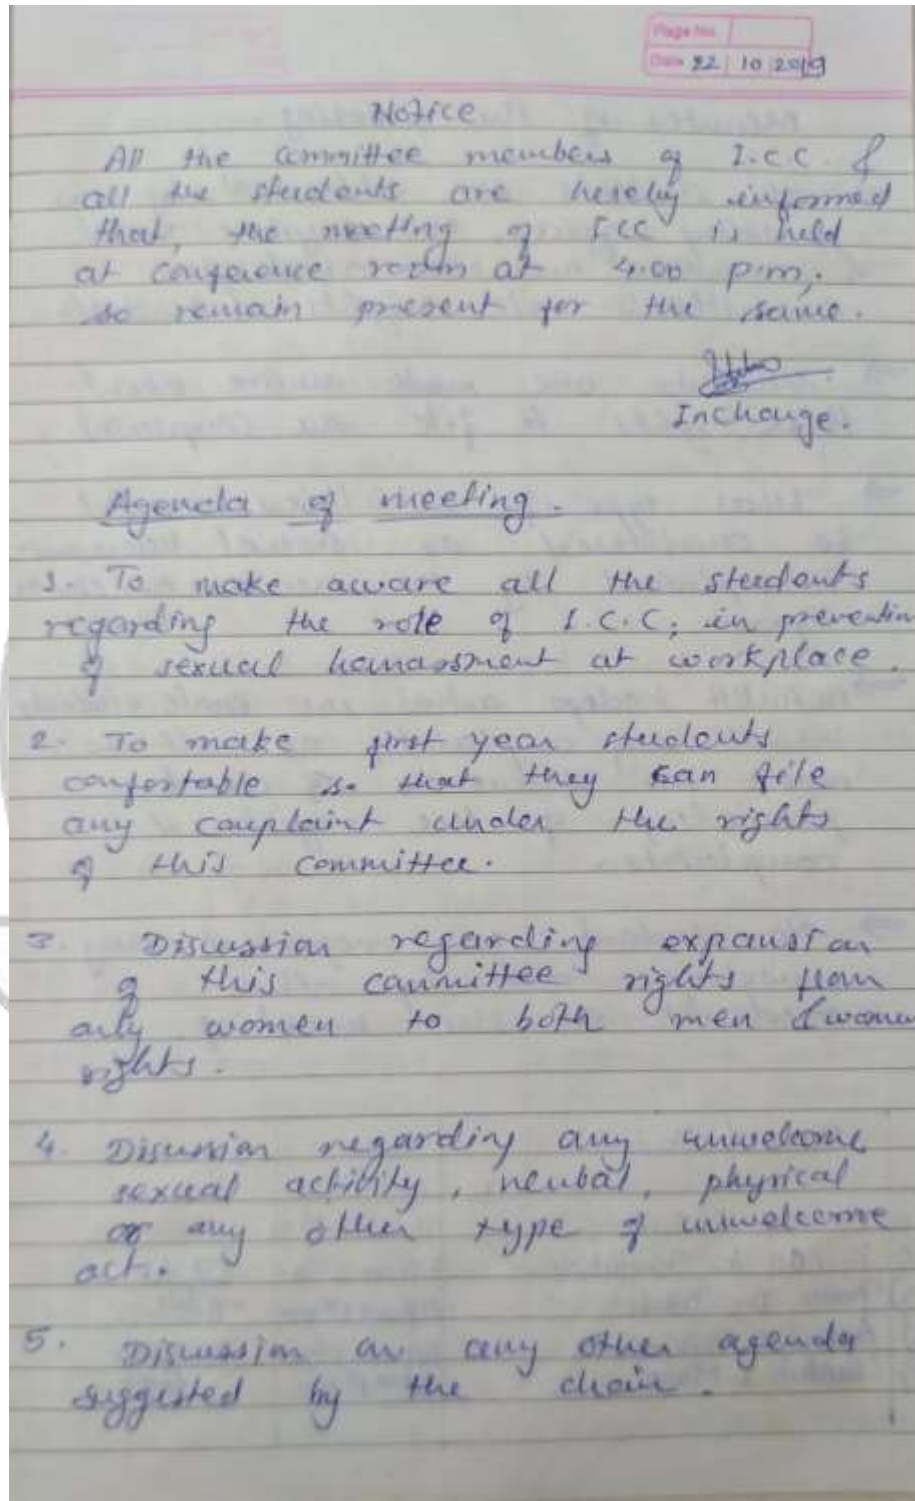 Page No.
Date 22 10 2019
Notice
All the committee members of I.C.C. &
all the students are hereby informed
that, the meeting of ICC is held
at conference room at 4.00 p.m,.
so remain present for the same.
Incharge.
Agenda of meeting.
1. To make aware all the students
regarding the role of I.C.C; in prevention
of sexual harrassment at workplace.
2. To make first year students
confortable so that they can file
any complaint under the rights
of this committee.
3 Discussion regarding expansion
of this committee rights from
only women to both men & women
rights.
4. Discussion regarding any unwelcome
sexual activity, verbal, physical
or any other type of unwelcome
act.
5. Discussion on any other agenda
suggested by the chair.